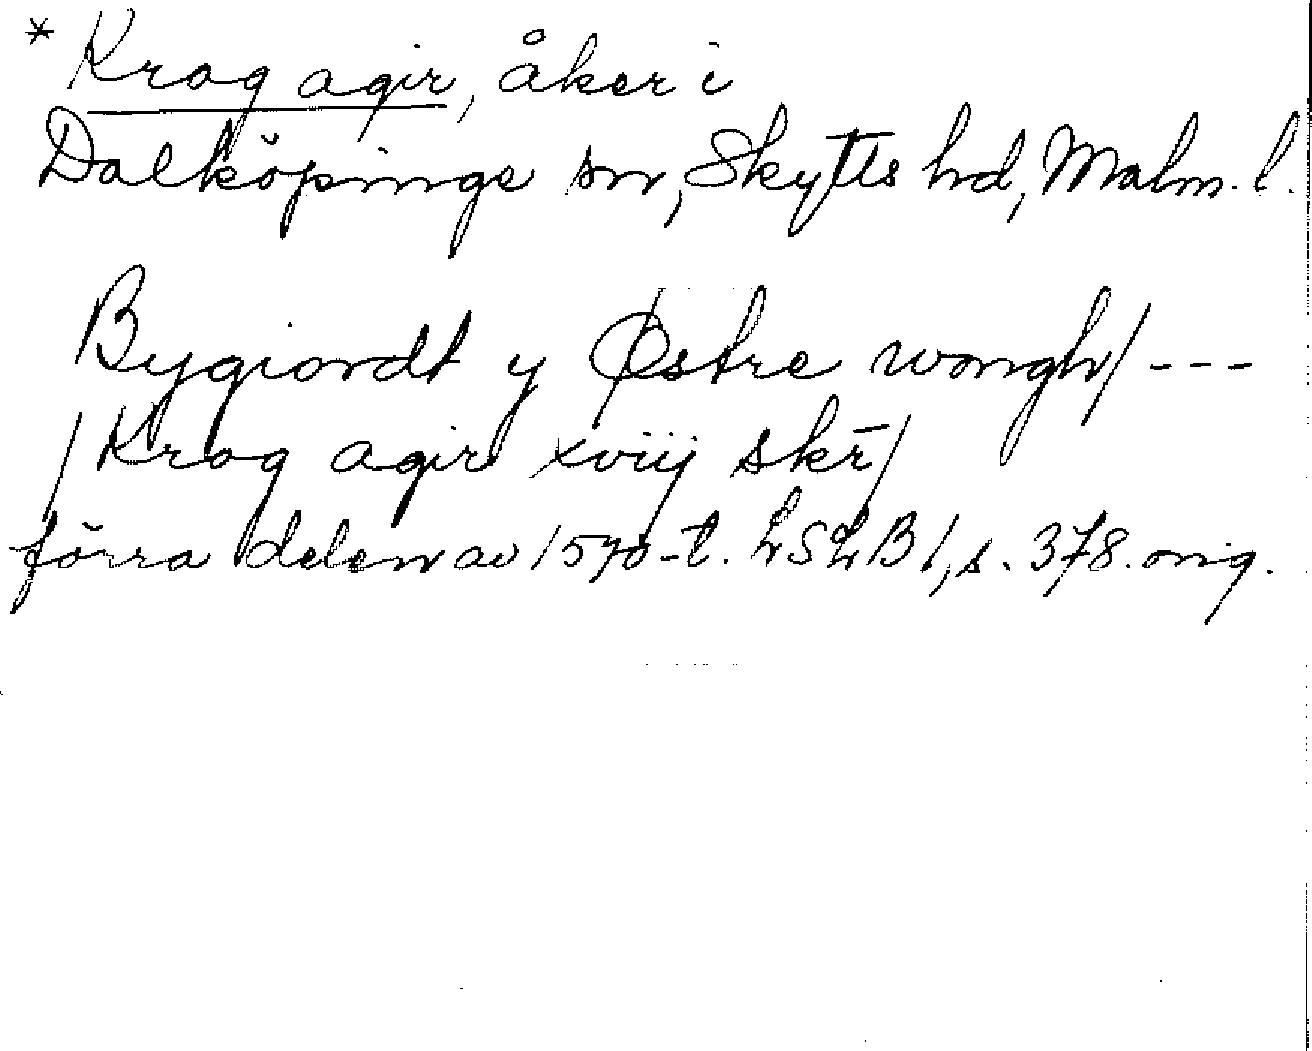 * Krog agir, åker i
Dalköpinge sn, Skytts hd, Malm. l.
Bygiordt y Østre wongh/ ---
/Krog agir xviij skr̄/
förra delen av 1570-t. LSLB 1, s. 378. orig.